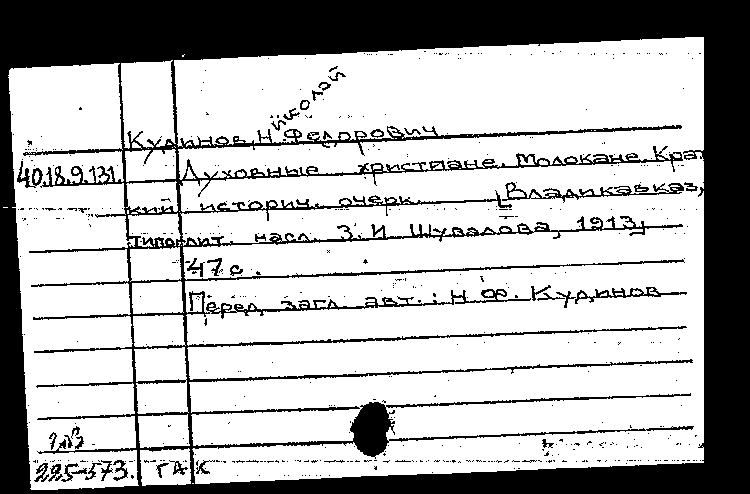 Кудинов, Николай Федорович
40.18.9.131. Духовные христиане. Молокане. Крат
кий историч. очерк. [Владикавказ,
типолит. насл. З. И. Шувалова, 1913]
47 с.
Перед загл. авт.: Н. Ф. Кудинов
225-573. ГАК